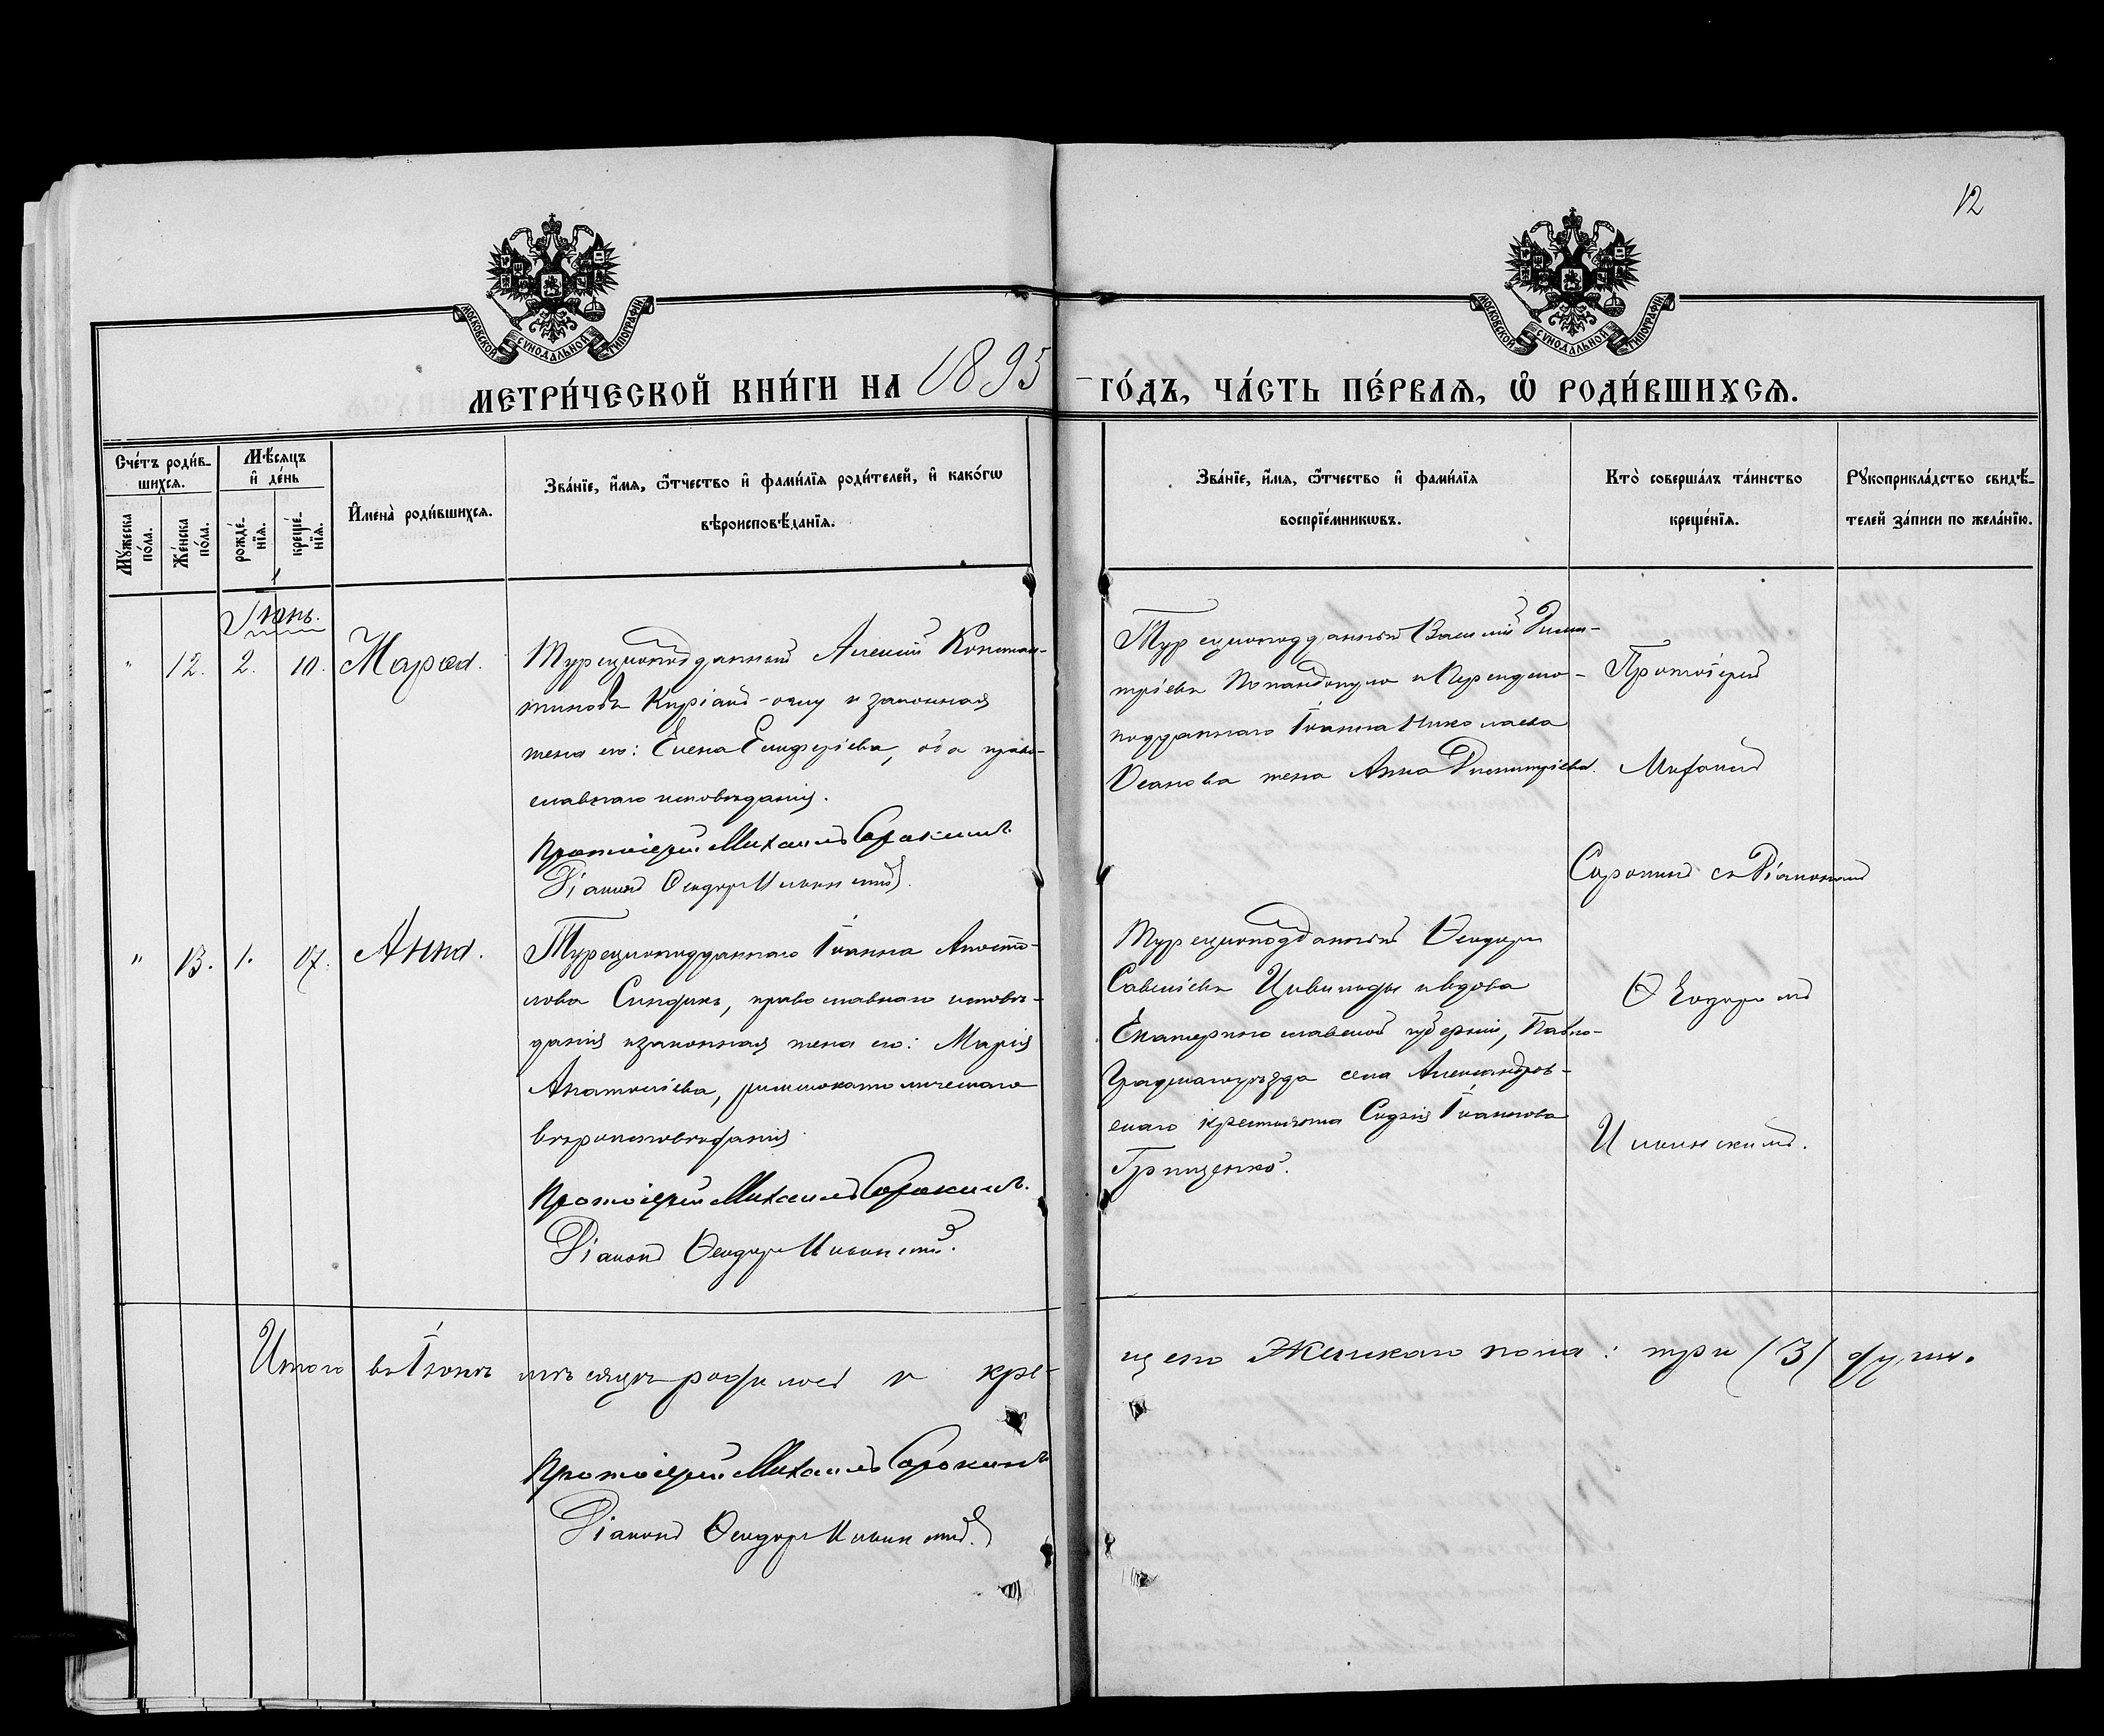 12
МОСКОВСКОЙ СѴНОДАЛЬНОЙ ТИПОГРАФІИ
МОСКОВСКОЙ СѴНОДАЛЬНОЙ ТИПОГРАФІИ
МЕТРИ́ЧЕСКОЙ КНИ́ГИ НА 1895 ГО́ДЪ, ЧА́СТЬ ПЕ́РВАѦ, Ѡ҆ РОДИ́ВШИХСѦ.
Сче́тъ роди́в-
шихсѧ.
Мѣ́сѧцъ
и҆ де́нь
Мꙋ́жеска
по́ла.
Же́нска
по́ла.
рожде́-
нїѧ.
креще́-
нїѧ.
И҆мена̀ роди́вшихсѧ.
Зва́нїе, и҆́мѧ, ѻ҆́тчество и҆ фами́лїѧ роди́телей, и҆ како́гѡ
вѣроисповѣ́данїѧ.
Зва́нїе, и҆́мѧ, ѻ҆́тчество и҆ фами́лїѧ
воспрїе́мникѡвъ.
Кто̀ соверша́лъ та́инство
креще́нїѧ.
Рꙋкоприкла́дство свидѣ́-
телей за́писи по жела́нїю.
Іюнь.
" 12. 2. 10.
Турецкоподданный Алексій Констан-
тиновъ и законная
жена его: Елена Елевферіева, оба право-
славнаго исповѣданія.
Протоіерей Михаилъ Сорокинъ.
Діаконъ Ѳеодоръ Ильинскій.
Турецкоподданный Василій Дими-
тріевъ Попандопуло и Персидско-
подданнаго Іоанна Николаева
жена Анна Димитріева.
Протоіерей
Михаилъ
Сорокинъ съ Діакономъ
" 13. 1. 17. Анна.
Турецкоподданнаго Іоанна Апосто-
лова православнаго исповѣ-
данія и законная жена его: Марія
Анатоліева, римско католическаго
вѣроисповѣданія.
Протоіерей Михаилъ Сорокинъ.
Діаконъ Ѳеодоръ Ильинскій.
Турецкоподданный Ѳеодоръ
Савельевъ и вдова
Екатеринославской губерніи, Павло-
градскаго уѣзда села Александров-
скаго крестьянка Іоаннова
Грищенко.
Ѳеодоромъ
Ильинскимъ.
Итого въ Іюнѣ мѣсяцѣ родилось и кре-
щено Женскаго пола: три (3) души.
Протоіерей Михаилъ Сорокинъ
Діаконъ Ѳеодоръ Ильинскій.